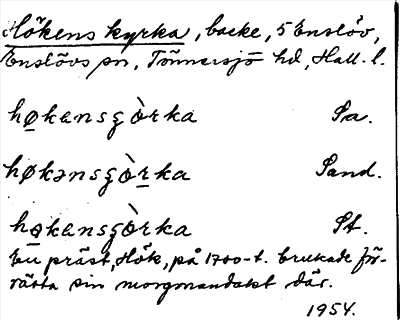 Hökens kyrka, backe, S Enslöv,
Enslövs sn, Tönnersjö hd, Hall. l.
høkensgòrka Sa.
høkənsgòrka Sand.
høkensgòrka St.
En präst, Hök, på 1700-t. brukade för-
rätta sin morgonandakt där.
1954.